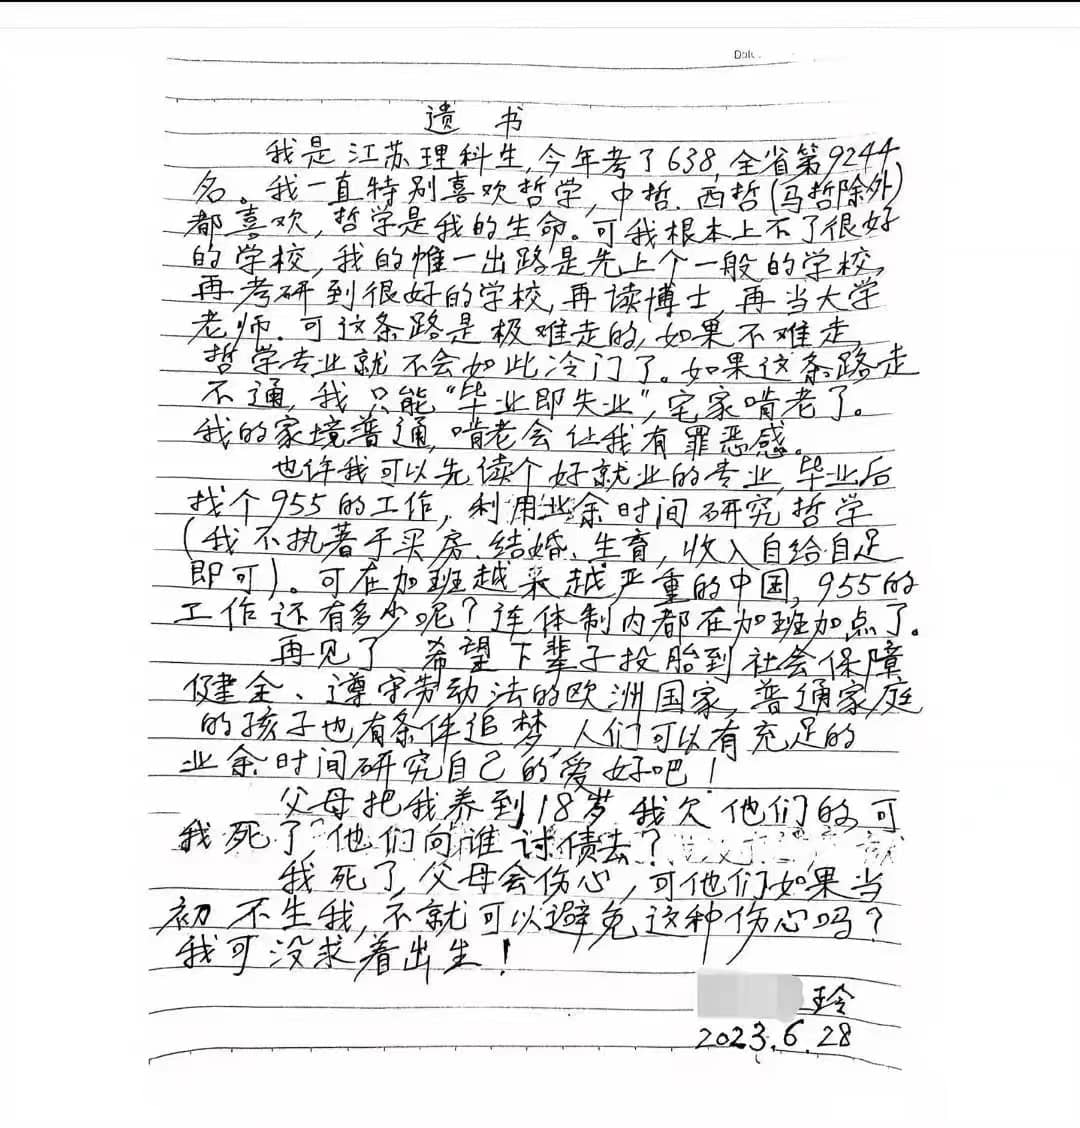 Date.
遗 书
我是江苏理科生,今年考了638,全省第9244
名。我一直特别喜欢哲学,中哲、西哲(马哲除外)
都喜欢,哲学是我的生命。可我根本上不了很好
的学校,我的惟一出路是先上个一般的学校,
再考研到很好的学校,再读博士,再当大学
老师.可这条路是极难走的,如果不难走,
哲学专业就不会如此冷门了。如果这条路走
不通,我只能“毕业即失业”,宅家啃老了。
我的家境普通,啃老会让我有罪恶感。
也许我可以先读个好就业的专业,毕业后
找个955的工作,利用业余时间研究哲学
(我不执著于买房、结婚、生育,收入自给自足
即可)。可在加班越来越严重的中国,955的
工作还有多少呢?连体制内都在加班加点了。
再见了 希望下辈子投胎到社会保障
健全、遵守劳动法的欧洲国家,普通家庭
的孩子也有条件追梦,人们可以有充足的
业余时间研究自己的爱好吧!
父母把我养到18岁 我欠他们的 可
我死了 他们向谁讨债去?
我死了,父母会伤心,可他们如果当
初不生我,不就可以避免这种伤心吗?
我可没求着出生!
玲
2023.6.28